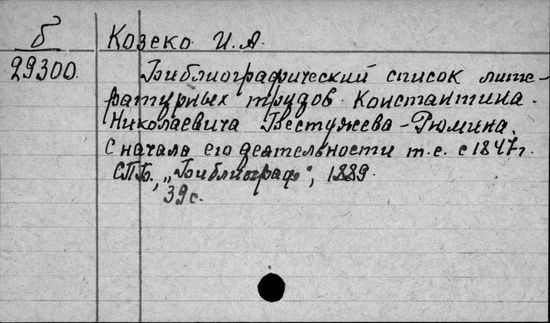 б Козеко И. А.
29300. Библиографический список лите-
ратурных трудов Константина
Николаевича Бестужева-Рюмина.
С начала его деятельности т.е. с 1847г.
СПБ, „Библиограф", 1889.
39 с.